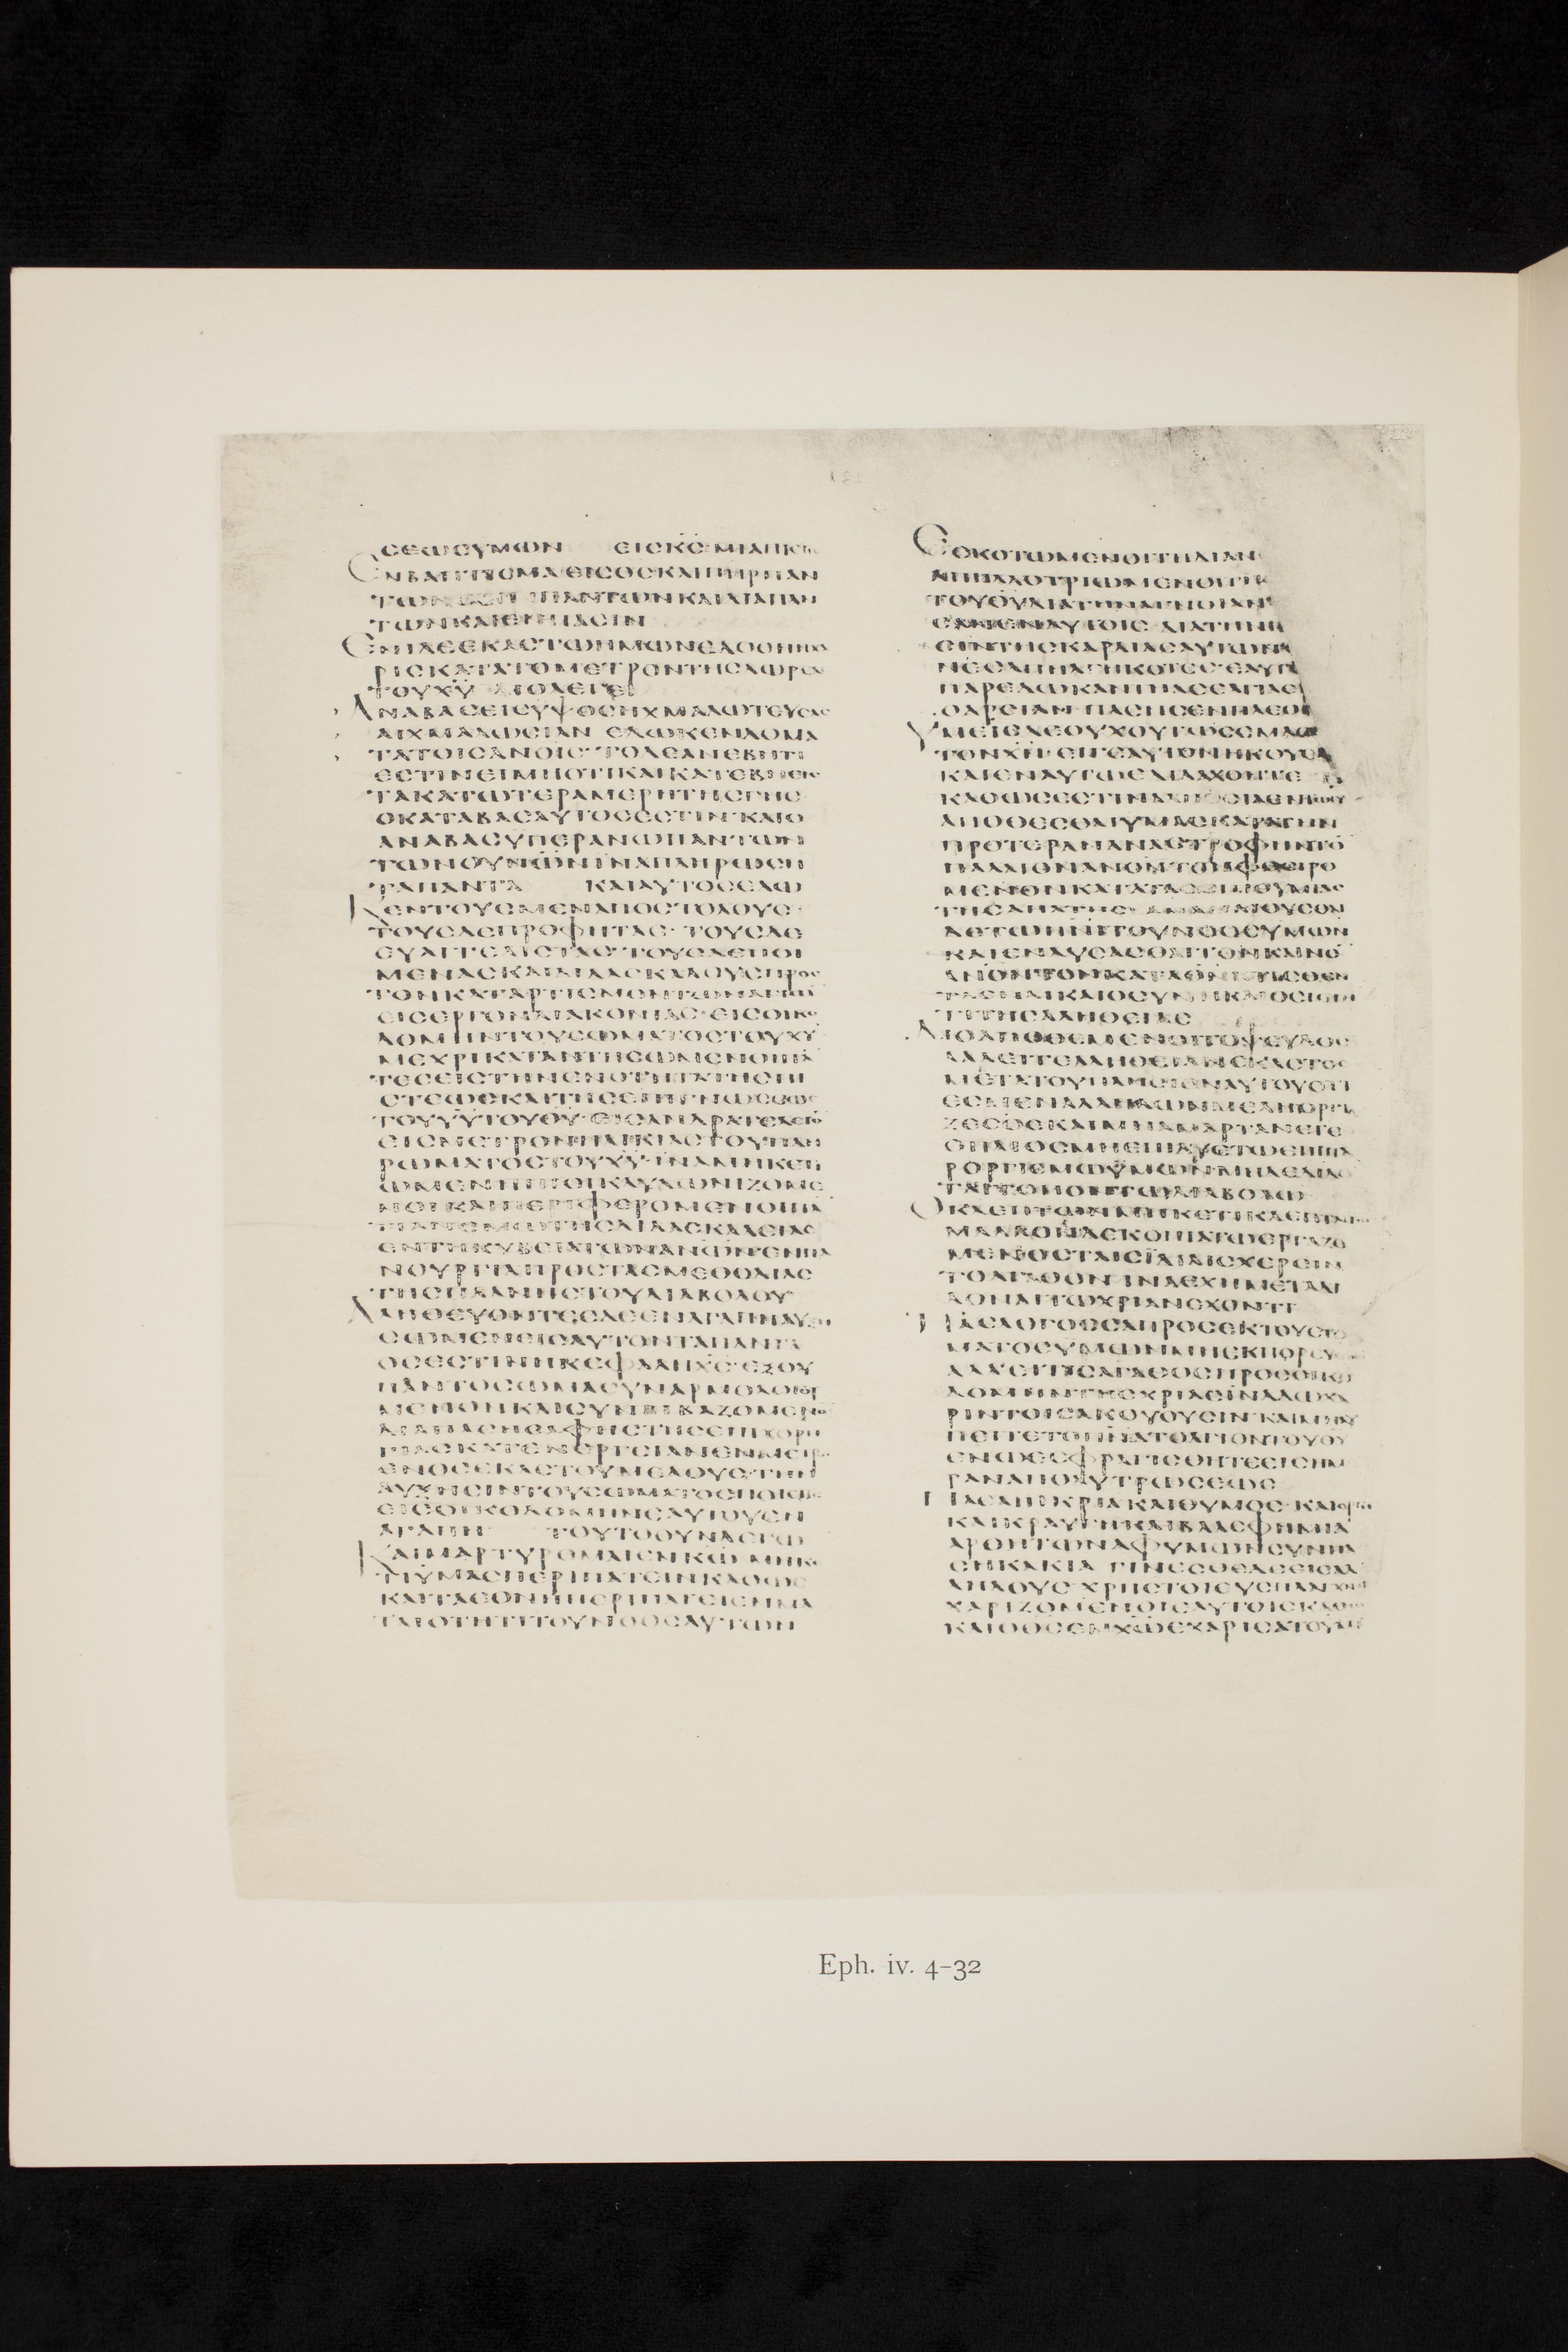 ϹΕΩϹΥΜΩΝ ΕΙϹΚϹ ΜΙΑΠΙϹ
ΕΝΒΑΠΤΙϹΜΑ ΕΙϹΘϹ ΚΑΙΠΗΡΠΑΝ
ΤΩΝ ΠΑΝΤΩΝΚΑΙΔΙΑΠΑΝ
ΤΩΝΚΑΙΕΝΠΑϹΙΝ
ΕΝΙΔΕΕΚΑϹΤΩΗΜΩΝΕΔΟΘΗΗΧΑ
ΡΙϹΚΑΤΑΤΟΜΕΤΡΟΝΤΗϹΔΩΡΕΑ
ΤΟΥΧΥ ΔΙΟΛΕΓΕΙ
ΑΝΑΒΑϹΕΙϹΥΨΟϹΗΧΜΑΛΩΤΕΥϹΕ
ΑΙΧΜΑΛΩϹΙΑΝ ΕΔΩΚΕΝΔΟΜΑ
ΤΑΤΟΙϹΑΝΟΙϹ ΤΟΔΕΑΝΕΒΗΤΙ
ΕϹΤΙΝΕΙΜΗΟΤΙΚΑΙΚΑΤΕΒΗΕΙϹ
ΤΑΚΑΤΩΤΕΡΑΜΕΡΗΤΗϹΓΗϹ
ΟΚΑΤΑΒΑϹΑΥΤΟϹΕϹΤΙΝΚΑΙΟ
ΑΝΑΒΑϹΥΠΕΡΑΝΩΠΑΝΤΩΝ
ΤΩΝΟΥΝΩΝΙΝΑΠΛΗΡΩϹΗ
ΤΑΠΑΝΤΑ ΚΑΙΑΥΤΟϹΕΔΩ
ΚΕΝΤΟΥϹΜΕΝΑΠΟϹΤΟΛΟΥϹ
ΤΟΥϹΔΕΠΡΟΦΗΤΑϹ ΤΟΥϹΔΕ
ΕΥΑΓΓΕΛΙϹΤΑϹ ΤΟΥϹΔΕΠΟΙ
ΜΕΝΑϹΚΑΙΔΙΔΑϹΚΑΛΟΥϹΠΡΟϹ
ΤΟΝΚΑΤΑΡΤΙϹΜΟΝΤΩΝΑΓΙΩΝ
ΕΙϹΕΡΓΟΝΔΙΑΚΟΝΙΑϹ ΕΙϹΟΙΚΟ
ΔΟΜΗΝΤΟΥϹΩΜΑΤΟϹΤΟΥΧΥ
ΜΕΧΡΙΚΑΤΑΝΤΗϹΩΜΕΝΟΙΠΑ
ΤΕϹΕΙϹΤΗΝΕΝΟΤΗΤΑΤΗϹΠΙ
ϹΤΕΩϹΚΑΙΤΗϹΕΠΙΓΝΩϹΕΩϹ
ΤΟΥΥΥΤΟΥΘΥ ΕΙϹΑΝΔΡΑΤΕΛΕΙΟ
ΕΙϹΜΕΤΡΟΝΗΛΙΚΙΑϹΤΟΥΠΛΗ
ΡΩΜΑΤΟϹΤΟΥΧΥ ΙΝΑΜΗΚΕΤΙ
ΩΜΕΝΝΗΠΙΟΙΚΛΥΔΩΝΙΖΟΜΕ
ΝΟΙΚΑΙΠΕΡΙΦΕΡΟΜΕΝΟΙΠΑ
ΤΙΑΝΕΜΩΤΗϹΔΙΔΑϹΚΑΛΕΙΑϹ
ΕΝΤΗΚΥΒΕΙΑΤΩΝΑΝΩΝΕΝΠΑ
ΝΟΥΡΓΙΑΠΡΟϹΤΑϹΜΕΘΟΔΙΑϹ
ΤΗϹΠΛΑΝΗϹΤΟΥΔΙΑΒΟΛΟΥ
ΑΛΗΘΕΥΟΝΤΕϹΔΕΕΝΑΓΑΠΗΑΥΞΗ
ϹΩΜΕΝΕΙϹΑΥΤΟΝΤΑΠΑΝΤΑ
ΟϹΕϹΤΙΝΗΚΕΦΑΛΗΧϹ ΕΞΟΥ
ΠΑΝΤΟϹΩΜΑϹΥΝΑΡΜΟΛΟΓΟΥ
ΜΕΝΟΝΚΑΙϹΥΝΒΙΒΑΖΟΜΕΝΟ
ΔΙΑΠΑϹΗϹΑΦΗϹΤΗϹΕΠΙΧΟΡΗ
ΓΙΑϹΚΑΤΕΝΕΡΓΕΙΑΝΕΝΜΕΤΡΩ
ΕΝΟϹΕΚΑϹΤΟΥΜΕΛΟΥϹ ΤΗΝ
ΑΥΞΗϹΙΝΤΟΥϹΩΜΑΤΟϹΠΟΙΕΙΤΑΙ
ΕΙϹΟΙΚΟΔΟΜΗΝΕΑΥΤΟΥΕΝ
ΑΓΑΠΗ ΤΟΥΤΟΟΥΝΛΕΓΩ
ΚΑΙΜΑΡΤΥΡΟΜΑΙΕΝΚΩ ΜΗΚΕ
ΤΙΥΜΑϹΠΕΡΙΠΑΤΕΙΝΚΑΘΩϹ
ΚΑΙΤΑΕΘΝΗΠΕΡΙΠΑΤΕΙΕΝΜΑ
ΤΑΙΟΤΗΤΙΤΟΥΝΟΟϹΑΥΤΩΝ
ΕϹΚΟΤΩΜΕΝΟΙΤΗΔΙΑΝ
ΑΠΗΛΛΟΤΡΙΩΜΕΝΟΙΤΗ
ΤΟΥΘΥΔΙΑΤΗΝΑΓΝΟΙΑΝ
ΕΝΑΥΤΟΙϹ ΔΙΑΤΗΝ
ΩϹΙΝΤΗϹΚΑΡΔΙΑϹΑΥΤΩΝ
ΠΑΡΕΔΩΚΑΝΤΗΑϹΕΛΓΙΑ
ΘΑΡϹΙΑΝ ΠΑϹΗϹΕΝΠΛΕΟ
ΥΜΕΙϹΔΕΟΥΧΟΥΤΩϹΕΜΑΘ
ΤΟΝΧΝ ΕΙΓΕΑΥΤΟΝΗΚΟΥϹΑ
ΚΑΙΕΝΑΥΤΩΕΔΙΔΑΧΘΗΤΕ
ΚΑΘΩϹΕϹΤΙΝΑΛΗΘΕΙΑΕΝΤΩΙΥ
ΑΠΟΘΕϹΘΑΙΥΜΑϹΚΑΤΑΤΗΝ
ΠΡΟΤΕΡΑΝΑΝΑϹΤΡΟΦΗΝΤΟ
ΠΑΛΑΙΟΝΑΝΟΝΤΟΝΦΘΕΙΡΟ
ΜΕΝΟΝΚΑΤΑΤΑϹΕΠΙΘΥΜΙΑϹ
ΤΗϹΑΠΑΤΗϹ ΑΝΑΝΕΟΥϹΘΑΙ
ΔΕΤΩΠΝΙΤΟΥΝΟΟϹΥΜΩΝ
ΚΑΙΕΝΔΥϹΑϹΘΑΙΤΟΝΚΑΙΝΟ
ΑΝΟΝΤΟΝΚΑΤΑΘΝΚΤΙϹΘΕΝ
ΤΑΕΝΔΙΚΑΙΟϹΥΝΗΚΑΙΟϹΙΟΤΗ
ΤΙΤΗϹΑΛΗΘΕΙΑϹ
ΔΙΟΑΠΟΘΕΜΕΝΟΙΤΟΨΕΥΔΟϹ
ΛΑΛΕΙΤΕΑΛΗΘΕΙΑΝΕΚΑϹΤΟϹ
ΜΕΤΑΤΟΥΠΛΗϹΙΟΝΑΥΤΟΥΟΤΙ
ΕϹΜΕΝΑΛΛΗΛΩΝΜΕΛΗΟΡΓΙ
ΖΕϹΘΕΚΑΙΜΗΑΜΑΡΤΑΝΕΤΕ
ΟΗΛΙΟϹΜΗΕΠΙΔΥΕΤΩΕΠΙΠΑ
ΡΟΡΓΙϹΜΩΥΜΩΝΜΗΔΕΔΙΔΟ
ΤΑΙΤΟΠΟΝΤΩΔΙΑΒΟΛΩ
ΟΚΛΕΠΤΩΝΜΗΚΕΤΙΚΛΕΠΤΕΤΩ
ΜΑΛΛΟΝΔΕΚΟΠΙΑΤΩΕΡΓΑΖΟ
ΜΕΝΟϹΤΑΙϹΙΔΙΑΙϹΧΕΡϹΙΝ
ΤΟΑΓΑΘΟΝ ΙΝΑΕΧΗΜΕΤΑΔΙ
ΔΟΝΑΙΤΩΧΡΙΑΝΕΧΟΝΤΙ
ΠΑϹΛΟΓΟϹϹΑΠΡΟϹΕΚΤΟΥϹΤΟ
ΜΑΤΟϹΥΜΩΝΜΗΕΚΠΟΡΕΥ
ΑΛΛΕΙΤΙϹΑΓΑΘΟϹΠΡΟϹΟΙΚΟ
ΔΟΜΗΝΤΗϹΧΡΙΑϹΙΝΑΔΩΧΑ
ΡΙΝΤΟΙϹΑΚΟΥΟΥϹΙΝ ΚΑΙΜΗΛΥ
ΠΕΙΤΕΤΟΠΝΑΤΟΑΓΙΟΝΤΟΥΘΥ
ΕΝΩΕϹΦΡΑΓΙϹΘΗΤΕΕΙϹΗΜ
ΡΑΝΑΠΟΛΥΤΡΩϹΕΩϹ
ΠΑϹΑΠΙΚΡΙΑΚΑΙΘΥΜΟϹ ΚΑΙΟΡΓΗ
ΚΑΙΚΡΑΥΓΗΚΑΙΒΛΑϹΦΗΜΙΑ
ΑΡΘΗΤΩΑΦΥΜΩΝϹΥΝΠΑ
ϹΗΚΑΚΙΑ ΓΙΝΕϹΘΕΔΕΕΙϹΑΛ
ΛΗΛΟΥϹ ΧΡΗϹΤΟΙΕΥϹΠΛΑΝΧΝΟΙ
ΧΑΡΙΖΟΜΕΝΟΙΕΑΥΤΟΙϹΚΑΘΩϹ
ΚΑΙΟΘϹΕΝΧΩΕΧΑΡΙϹΑΤΟΥΜΙ
Eph. iv. 4–32